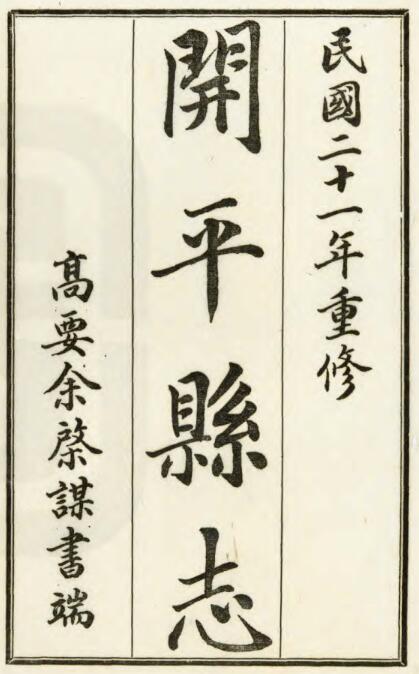 民國二十一年重修
開平縣志
高要余棨謀書端